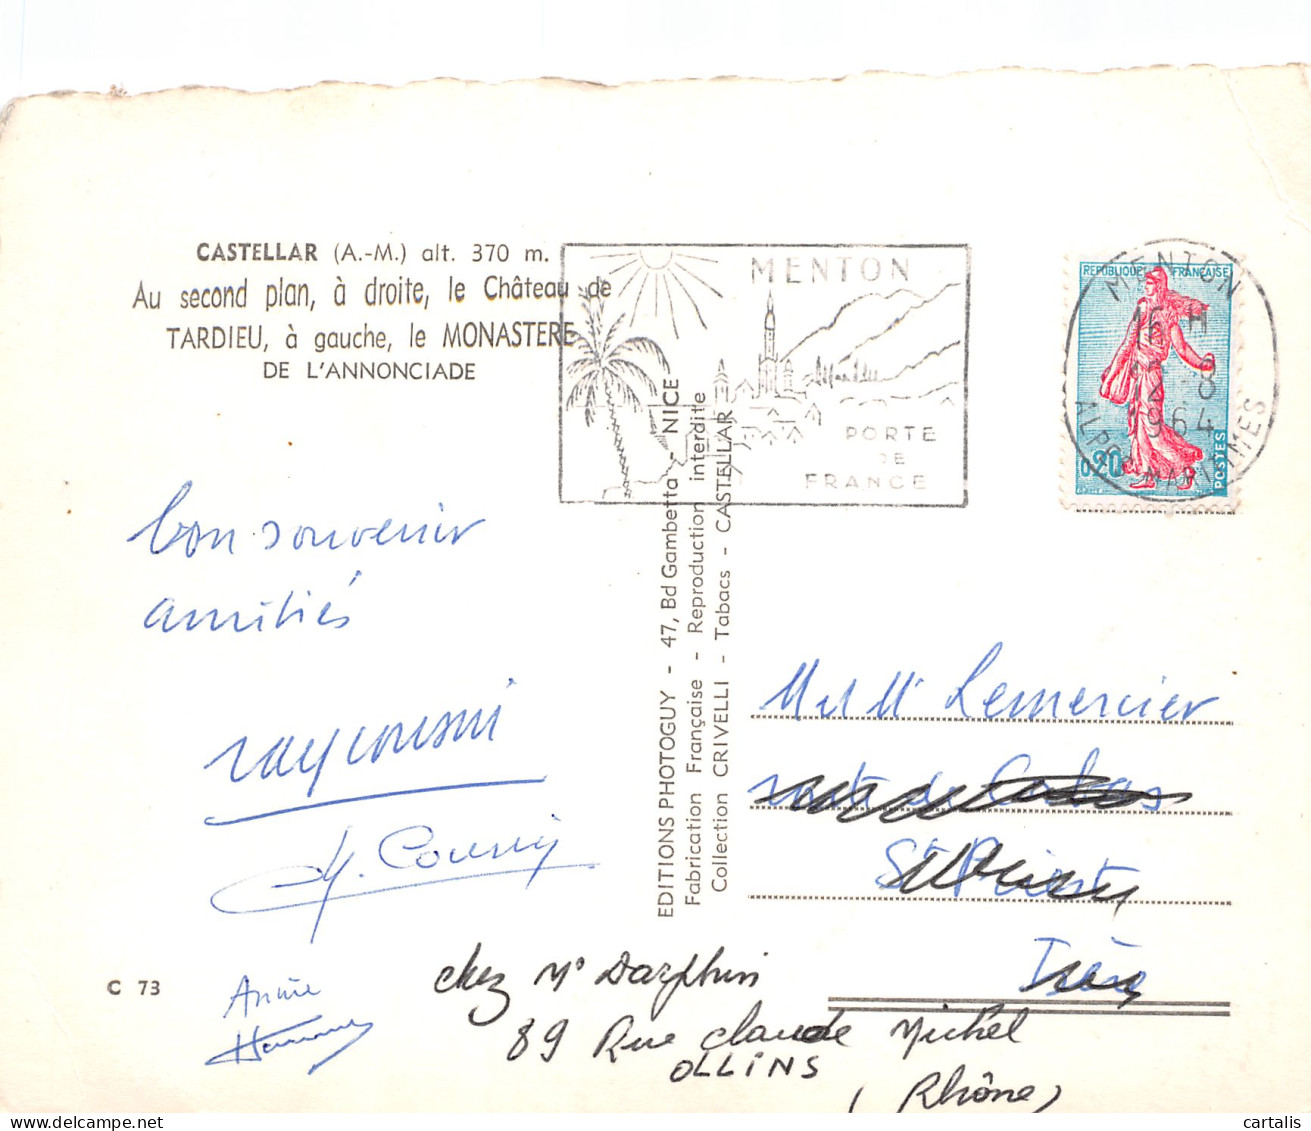 CASTELLAR (A.-M.) alt. 370 m.
Au second plan, à droite, le Château de
TARDIEU, à gauche, le MONASTERE
DE L'ANNONCIADE
MENTON
PORTE
DE
FRANCE
REPUBLIQUE FRANÇAISE
0,20
POSTES
MENTON
16 H
12-8
1964
ALPES MARITIMES
EDITIONS PHOTOGUY - 47, Bd Gambetta - NICE
Fabrication Française - Reproduction interdite
Collection CRIVELLI - Tabacs - CASTELLAR
bon souvenir
amitiés
M et Mme Lemercier
route de
St Priest
Isère
C 73
Annie
chez Mr Darphin
89 Rue claude Michel
OLLINS
(Rhône)
cartalis
www.delcampe.net